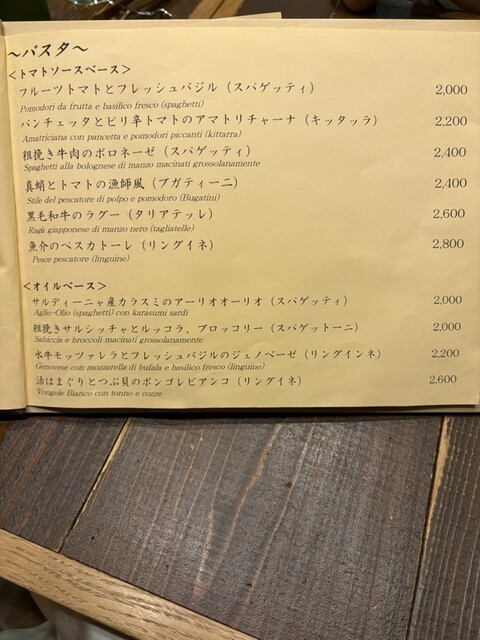 ～パスタ～
＜トマトソースベース＞
フルーツトマトとフレッシュバジル（スパゲッティ） 2,000
Pomodori da frutta e basilico fresco (spaghetti)
パンチェッタとピリ辛トマトのアマトリチャーナ（キッタッラ） 2,200
Amatriciana con pancetta e pomodori piccanti (kittarra)
粗挽き牛肉のボロネーゼ（スパゲッティ） 2,400
Spaghetti alla bolognese di manzo macinati grossolanamente
真蛸とトマトの漁師風（ブガティーニ） 2,400
Stile del pescatore di polpo e pomodoro (Bugatini)
黒毛和牛のラグー（タリアテッレ） 2,600
Ragù giapponese di manzo nero (tagliatelle)
魚介のペスカトーレ（リングイネ） 2,800
Pesce pescatore (linguine)
＜オイルベース＞
サルディーニャ産カラスミのアーリオオーリオ（スパゲッティ） 2,000
Aglio-Olio (spaghetti) con karasumi sardi
粗挽きサルシッチャとルッコラ、ブロッコリー（スパゲットーニ） 2,000
Salsiccia e broccoli macinati grossolanamente
水牛モッツァレラとフレッシュバジルのジェノベーゼ（リングインネ） 2,200
Genovese con mozzarella di bufala e basilico fresco (linguine)
活はまぐりとつぶ貝のボンゴレビアンコ（リングイネ） 2,600
Vongole Bianco con tonno e cozze